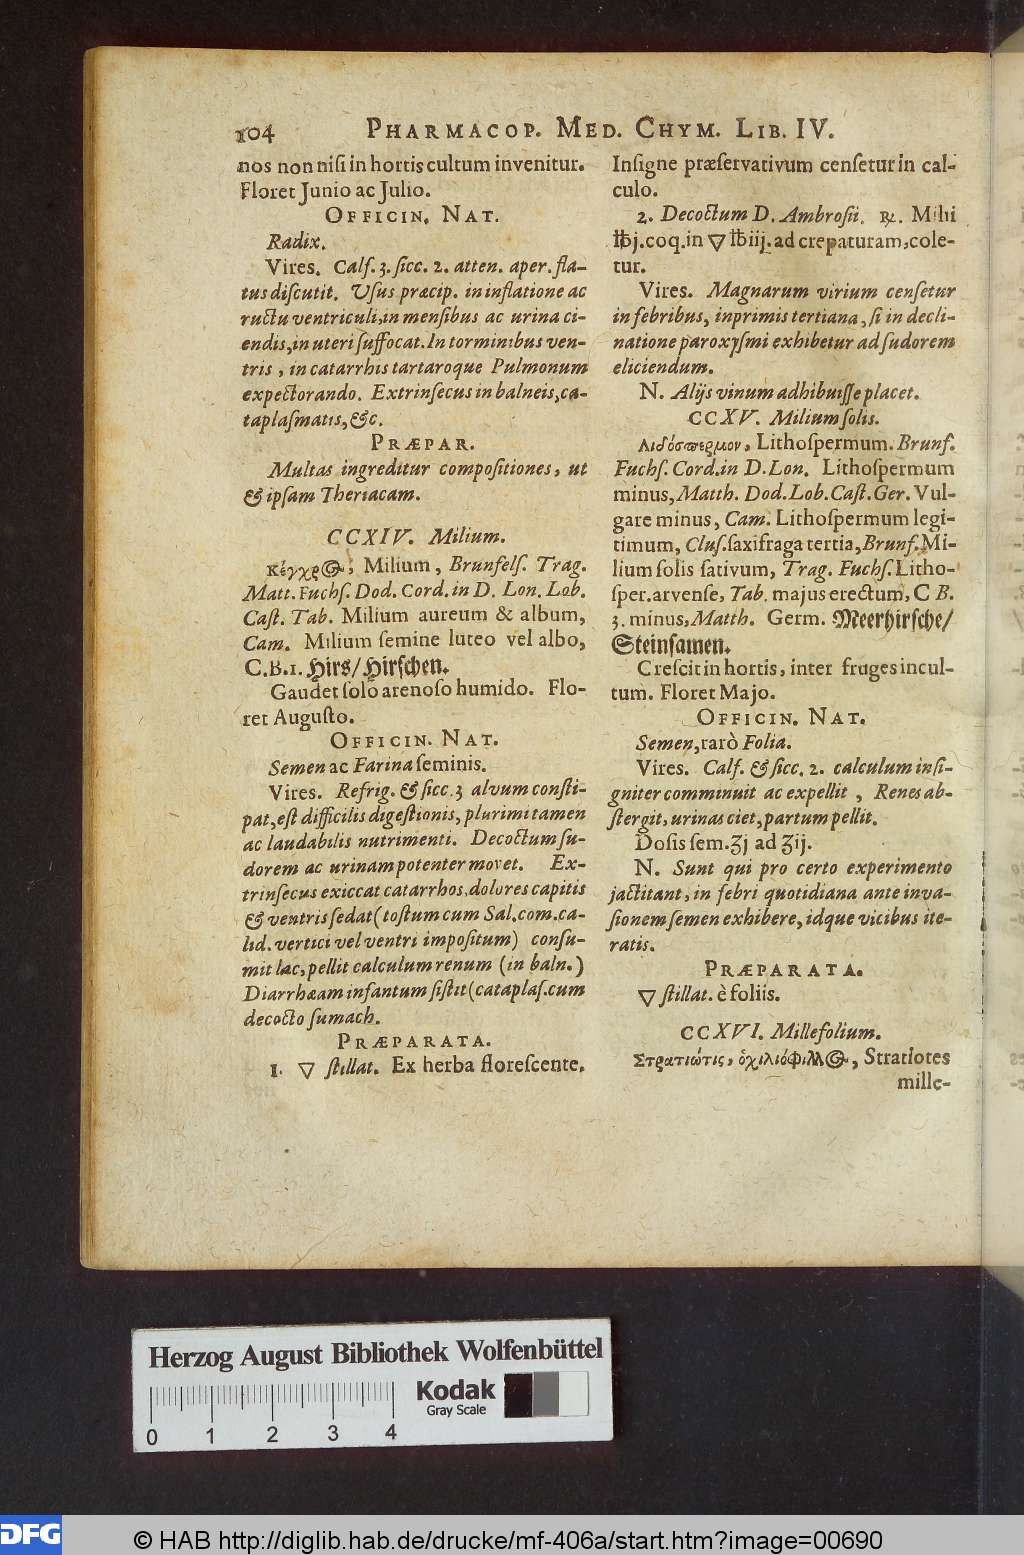 104 PHARMACOP. MED. CHYM. LIB. IV.
nos non niſi in hortis cultum invenitur.
Floret Junio ac Julio.
OFFICIN. NAT.
Radix.
Vires. Calf. 3. ſicc. 2. atten. aper. fla-
tus diſcutit. Uſus præcip. in inflatione ac
ructu ventriculi, in menſibus ac urina ci-
endis, in uteri ſuffocat. In torminibus ven-
tris, in catarrhis tartaroque Pulmonum
expectorando. Extrinſecus in balneis, ca-
taplaſmatis, &c.
PRÆPAR.
Multas ingreditur compoſitiones, ut
& ipſam Theriacam.
CCXIV. Milium.
Κέγχρος, Milium, Brunfelſ. Trag.
Matt. Fuchſ. Dod. Cord. in D. Lon. Lob.
Caſt. Tab. Milium aureum & album,
Cam. Milium ſemine luteo vel albo,
C.B.1. Hirs/ Hirſchen.
Gaudet ſolo arenoſo humido. Flo-
ret Auguſto.
OFFICIN. NAT.
Semen ac Farina ſeminis.
Vires. Refrig. & ſicc. 3 alvum conſti-
pat, eſt difficilis digeſtionis, plurimi tamen
ac laudabilis nutrimenti. Decoctum ſu-
dorem ac urinam potenter movet. Ex-
trinſecus exiccat catarrhos, dolores capitis
& ventris ſedat (toſtum cum Sal. com. ca-
lid. vertici vel ventri impoſitum) conſu-
mit lac, pellit calculum renum (in baln.)
Diarrhæam infantum ſiſtit (cataplaſ. cum
decocto ſumach.
PRÆPARATA.
1. ▽ ſtillat. Ex herba floreſcente.
Inſigne præſervativum cenſetur in cal-
culo.
2. Decoctum D. Ambroſii. ℞. Milii
℔j. coq. in ▽ ℔iij. ad crepaturam, cole-
tur.
Vires. Magnarum virium cenſetur
in febribus, inprimis tertiana, ſi in decli-
natione paroxyſmi exhibetur ad ſudorem
eliciendum.
N. Alijs vinum adhibuiſſe placet.
CCXV. Milium ſolis.
Λιθόσπερμον, Lithoſpermum. Brunf.
Fuchſ. Cord. in D. Lon. Lithoſpermum
minus, Matth. Dod. Lob. Caſt. Ger. Vul-
gare minus, Cam. Lithoſpermum legi-
timum, Cluſ. ſaxifraga tertia, Brunf. Mi-
lium ſolis ſativum, Trag. Fuchſ. Litho-
ſper. arvenſe, Tab. majus erectum, C B.
3. minus, Matth. Germ. Meerhirſche/
Steinſamen.
Creſcit in hortis, inter fruges incul-
tum. Floret Majo.
OFFICIN. NAT.
Semen, rarò Folia.
Vires. Calf. & ſicc. 2. calculum inſi-
gniter comminuit ac expellit, Renes ab-
ſtergit, urinas ciet, partum pellit.
Doſis ſem. ʒj ad ʒij.
N. Sunt qui pro certo experimento
jactitant, in febri quotidiana ante inva-
ſionem ſemen exhibere, idque vicibus ite-
ratis.
PRÆPARATA.
▽ ſtillat. è foliis.
CCXVI. Millefolium.
Στρατιώτις, ὁχιλιόφιλλος, Stratiotes
mille-
Herzog August Bibliothek Wolfenbüttel
Kodak
Gray Scale
0 1 2 3 4
DFG
© HAB http://diglib.hab.de/drucke/mf-406a/start.htm?image=00690